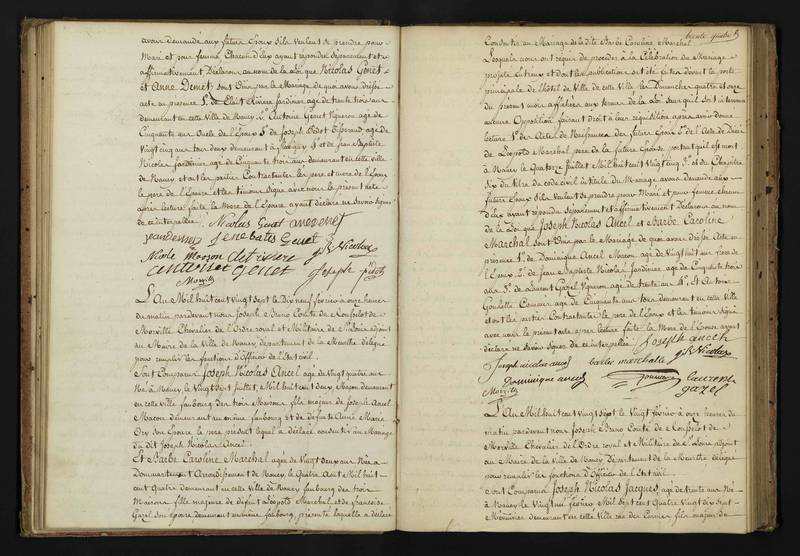 avoir demandé aux futurs Epoux s'ils veulent se prendre pour
Mari et pour femme, Chacun d'eux ayant répondu séparément et
affirmativement Déclarons au nom de la Loi que Nicolas Genet
et Anne Demet, sont Unis par le Mariage de quoi avons dressé
acte en présence 1° de Elsiit Rivière Jardinier agé de trente trois ans
demeurant en cette Ville de Nancy 2° Antoine Genet Vigneron agé de
Cinquante ans Oncle de l'Epoux 3° de Joseph
Vingt cinq ans tous deux demeurant à et de Jean Baptiste
Nicolas Jardinier agé de Cinquante trois ans demeurant en cette ville
de Nancy et ont les parties Contractantes les père et mère de l'Epoux
le père de l'Epouse et les témoins signé avec nous le présent acte
après lecture faite la Mère de l'Epouse ayant déclaré ne savoir signer
de ce interpellée.
Nicolas Genet anne demet
jean demet Jene batis Genet
Nicole Masson J B Nicolas
antoine Genet Joseph
Morville
L'An Mil huit cent Vingt sept le Dix neuf février à onze heures
du matin pardevant nous Joseph Bruno Comte de
Morville Chevalier de l'Ordre royal et Militaire de St Louis adjoint
au Maire de la Ville de Nancy, département de la Meurthe délégué
pour remplir les fonctions d'Officier de l'Etat civil.
Sont Comparus Joseph Nicolas Ancel agé de vingt quatre ans
Né à Nancy le Vingt sept Juillet Mil huit cent deux, Maçon demeurant
en cette ville faubourg des trois Maisons, fils majeur de Joseph Ancel
Maçon demeurant au même faubourg et de défunte Anne Marie
Ory son Epouse le père présent lequel a déclaré consentir au Mariage
du dit Joseph Nicolas Ancel.
Et Barbe Caroline Marchal agée de Vingt deux ans Née à
Dommartemont Arrondissement de Nancy, le Quatre Aout Mil huit
cent Quatre demeurant en cette Ville de Nancy faubourg des trois
Maisons fille majeure de défunt Léopold Marchal et de françoise
Gazel son épouse demeurant au même faubourg, présente laquelle a déclaré
trente quatre
Consentir au Mariage de la dite Barbe Caroline Marchal
Lesquels nous ont requis de procéder à la Célébration du Mariage
projeté entr'eux et dont les publications ont été faites devant la porte
principale de l'hôtel de Ville de cette ville les Dimanches quatre et onze
du présent mois affichées aux termes de la Loi sans qu'il soit intervenu
aucune Opposition faisant droit à leur réquisition après avoir donné
lecture 1° des Actes de Naissance des futurs Epoux 2° de l'Acte de Décès
de Léopold Marchal père de la future Epouse portant qu'il est mort
à Nancy le Quatorze Juillet Mil huit cent Vingt cinq 3° et du Chapitre
Six du titre du Code civil intitulé du Mariage avons demandé aux
futurs Epoux s'ils veulent se prendre pour Mari et pour femme chacun
d'eux ayant répondu séparément et affirmativement Déclarons au nom
de la Loi que Joseph Nicolas Ancel et Barbe Caroline
Marchal sont Unis par le Mariage de quoi avons dressé Acte en
présence 1° de Dominique Ancel Maçon agé de Vingt huit ans frère de
l'Epoux 2° de Jean Baptiste Nicolas Jardinier agé de Cinquante trois
ans 3° de Laurent Gazel Vigneron agé de trente ans 4° Et Antoine
agé de Cinquante ans tous demeurant en cette Ville
et ont les parties Contractantes le père de l'Epoux et les témoins signé
avec nous le présent acte après lecture faite la Mère de l'Epouse ayant
déclaré ne savoir signer de ce interpellée. Joseph ancel
Joseph nicolas ancel barbe marchalle J B Nicolas
Dominique ancel laurent
Morville gazel
L'An Mil huit cent Vingt sept le Vingt février à onze heures du
matin pardevant nous Joseph Bruno Comte de
Morville Chevalier de l'Ordre royal et Militaire de St Louis adjoint
au Maire de la Ville de Nancy Département de la Meurthe délégué
pour remplir les fonctions d'Officier de l'Etat civil
Sont Comparus Joseph Nicolas Jacques agé de trente ans Né
à Nancy le Vingt un février Mil Sept cent Quatre Vingt dix sept
Menuisier demeurant en cette Ville rue des fils majeur de